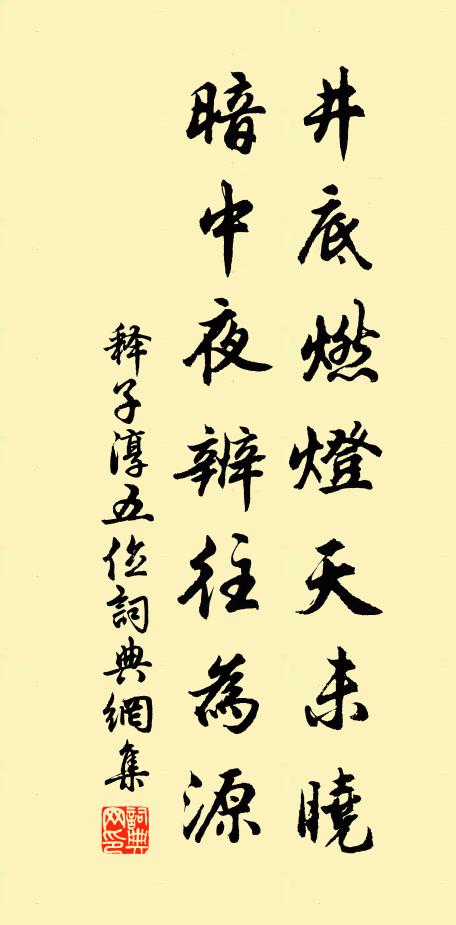 井底燃燈天未曉
暗中夜辨往為源
释子淳五位詞典網集
詞典網印